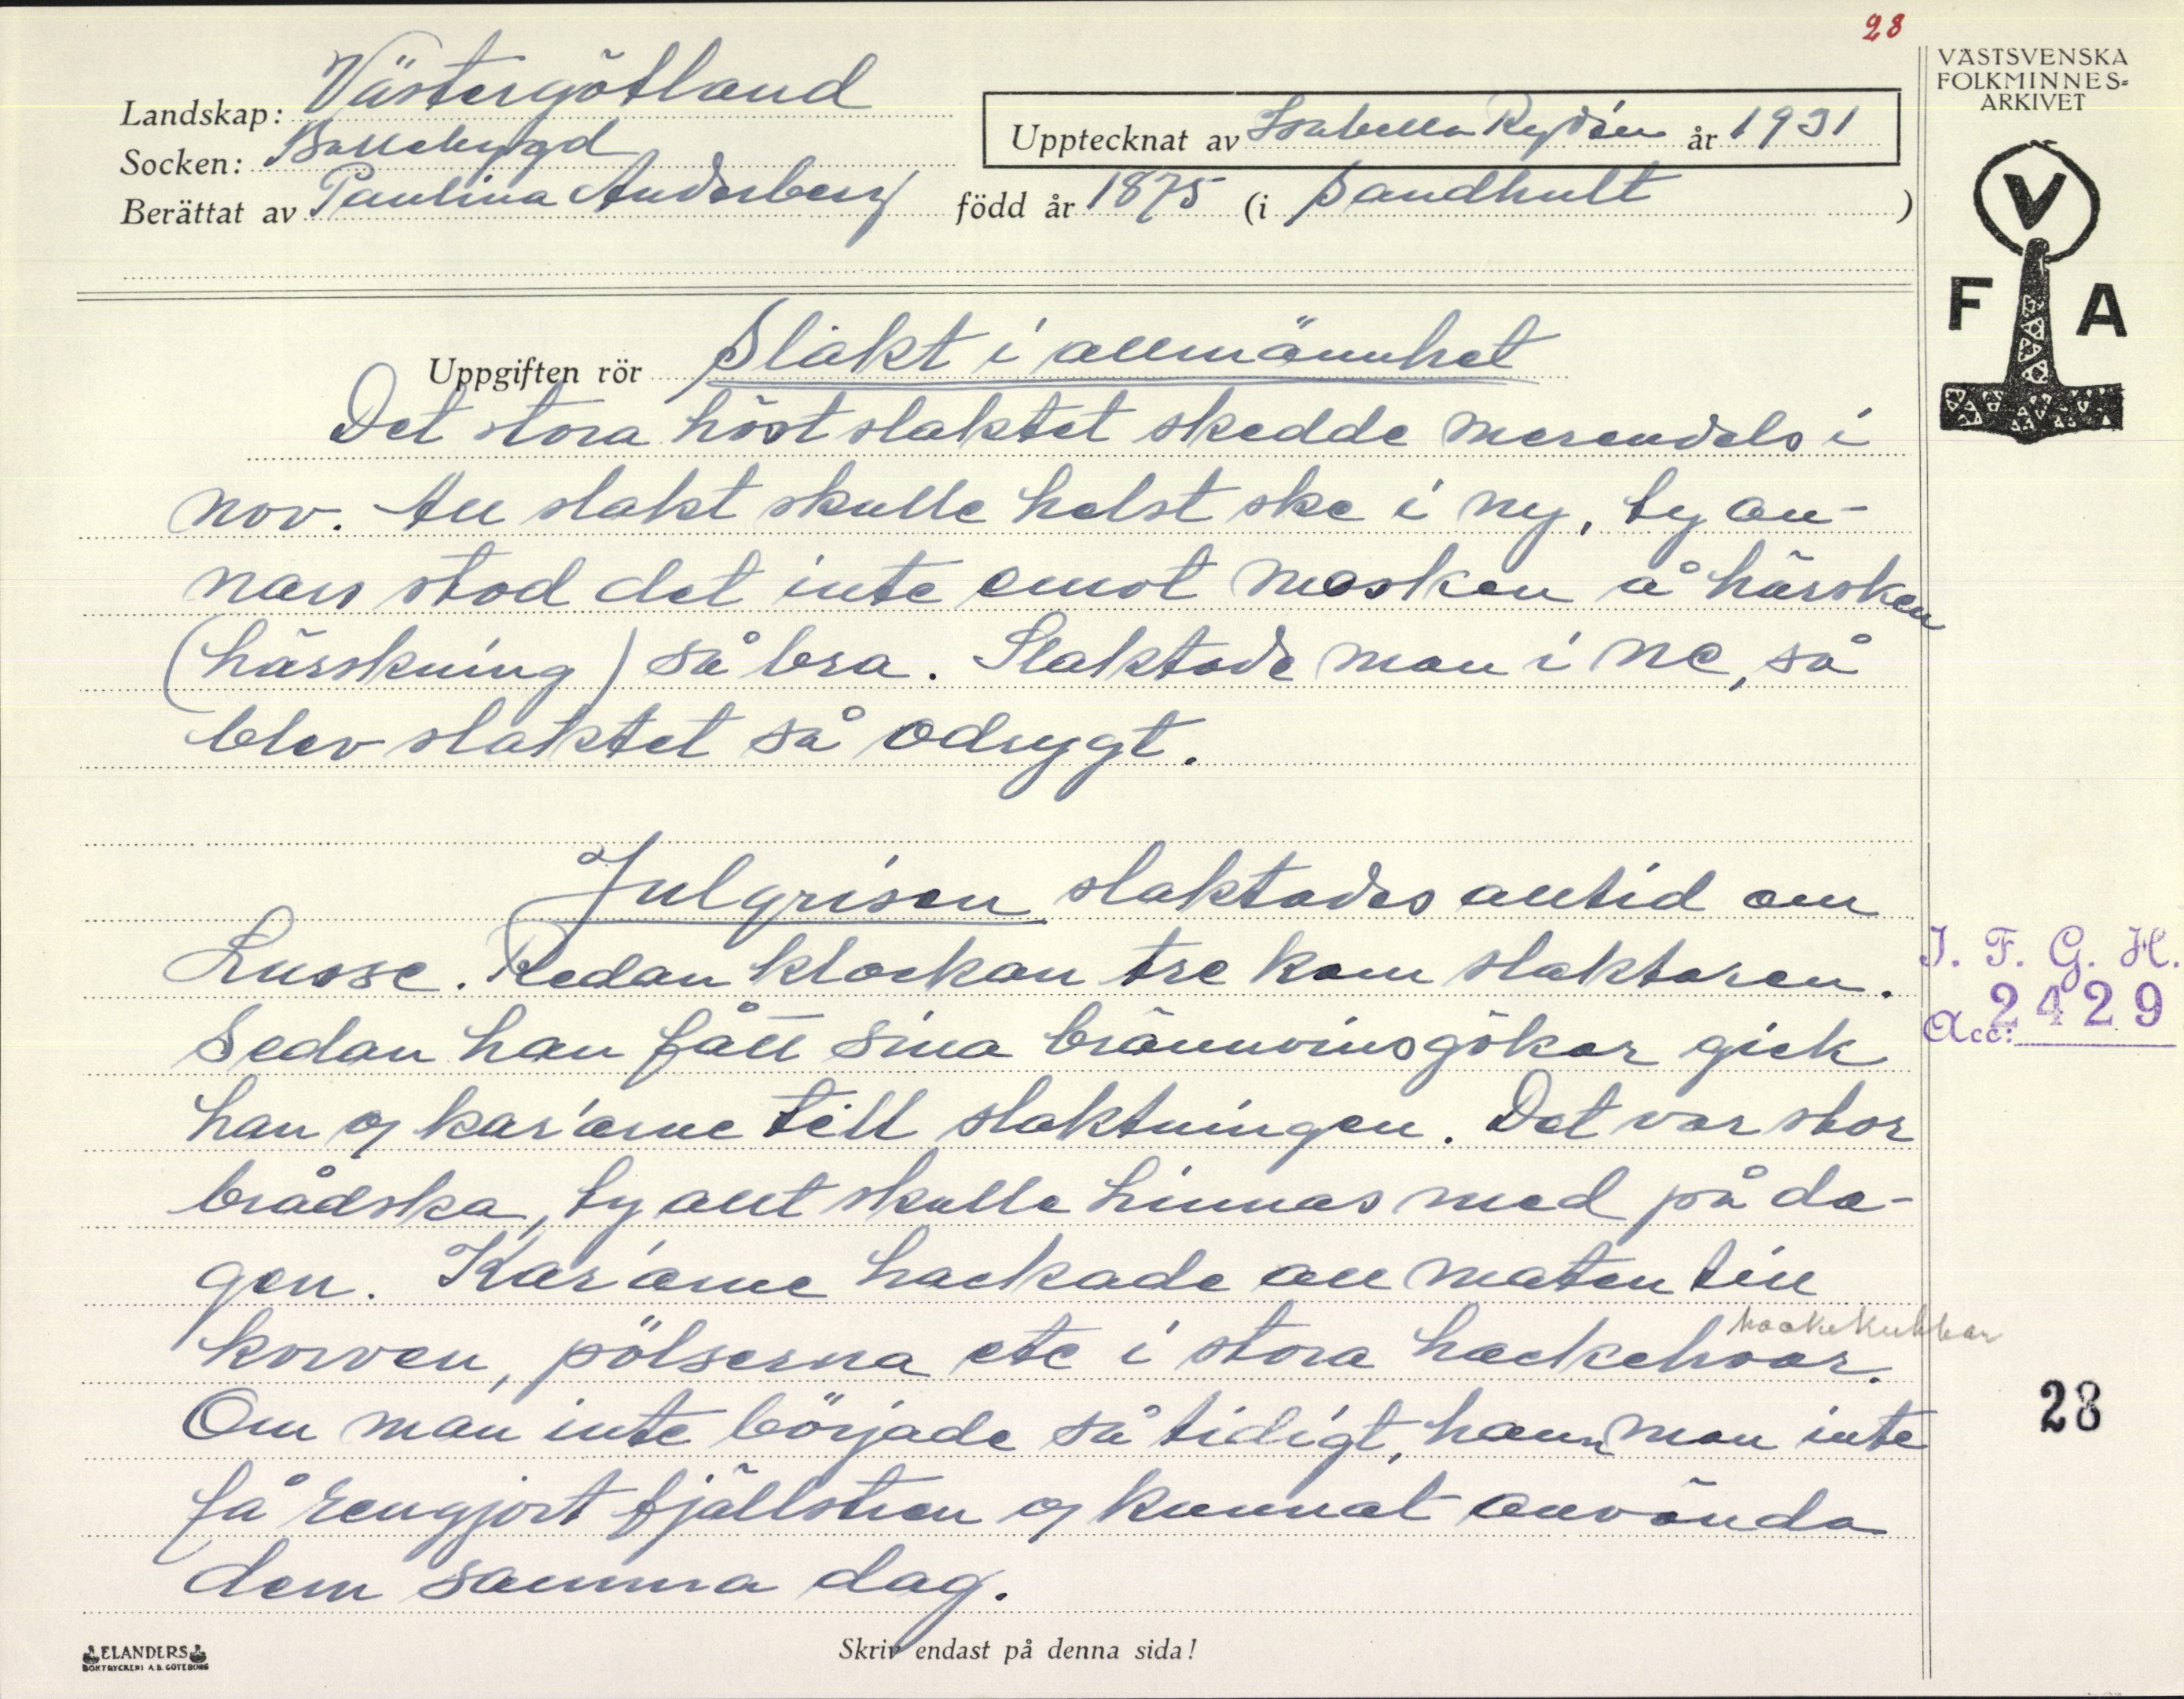 28
VÄSTSVENSKA
FOLKMINNES=
ARKIVET
V
F A
Landskap: Västergötland
Socken: Bollebygd
Upptecknat av Isabella Rydén år 1931
Berättat av Paulina Anderberg född år 1875 (i Sandhult )
Uppgiften rör Slakt i allmännhet
Det stora höstslaktet skedde merendels i
nov. All slakt skulle helst ske i ny, ty an-
nars stod det inte emot masken å härsken
(härskning) så bra. Slaktade man i ne, så
blev slaktet så odrygt.
Julgrisen slaktades alltid om
Lusse. Redan klockan tre kom slaktaren.
Sedan han fått sina brännvinsgökar gick
han oj kar'arne till slaktningen. Det var stor
brådska, ty allt skulle hinnas med på da-
gen. Kar'arne hackade all maten till
korven, pölserna etc i stora hackehoar.
hackekubbar
Om man inte började så tidigt, hann man inte
få rengjort fjällstren oj kunnat använda
dem samma dag.
I. F. G. H.
Acc: 2429
28
ELANDERS
BOKTRYCKERI A.B. GÖTEBORG
Skriv endast på denna sida!